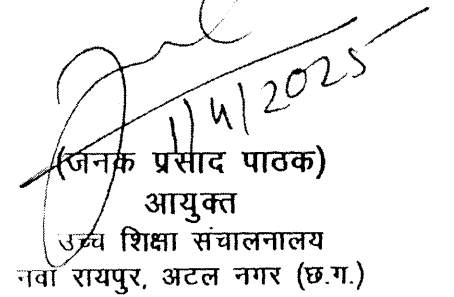 1/4/2025
(जनक प्रसाद पाठक)
आयुक्त
उच्च शिक्षा संचालनालय
नवा रायपुर, अटल नगर (छ.ग.)